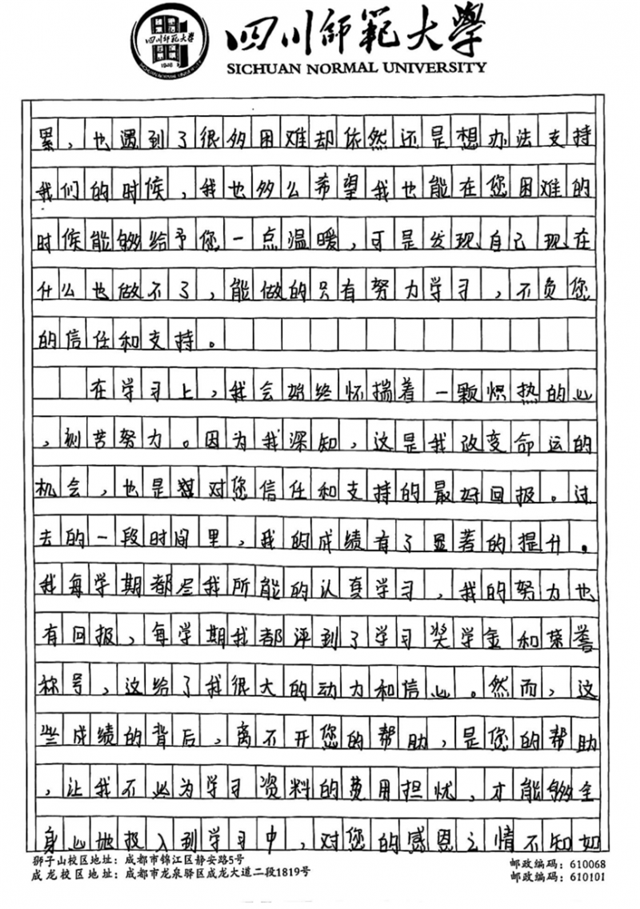 四川師範大學
1946
SICHUAN NORMAL UNIVERSITY
累，也遇到了很多困难却依然还是想办法支持
我们的时候，我也多么希望我也能在您困难的
时候能够给予您一点温暖，可是发现自己现在
什么也做不了，能做的只有努力学习，不负您
的信任和支持。
在学习上，我会始终怀揣着一颗炽热的心
，刻苦努力。因为我深知，这是我改变命运的
机会，也是对您信任和支持的最好回报。过
去的一段时间里，我的成绩有了显著的提升。
我每学期都尽我所能的认真学习，我的努力也
有回报，每学期我都评到了学习奖学金和荣誉
称号，这给了我很大的动力和信心。然而，这
些成绩的背后，离不开您的帮助，是您的帮助
，让我不必为学习资料的费用担忧，才能够全
身心地投入到学习中，对您的感恩之情不知如
狮子山校区地址：成都市锦江区静安路5号 邮政编码：610068
成龙校区地址：成都市龙泉驿区成龙大道二段1819号 邮政编码：610101